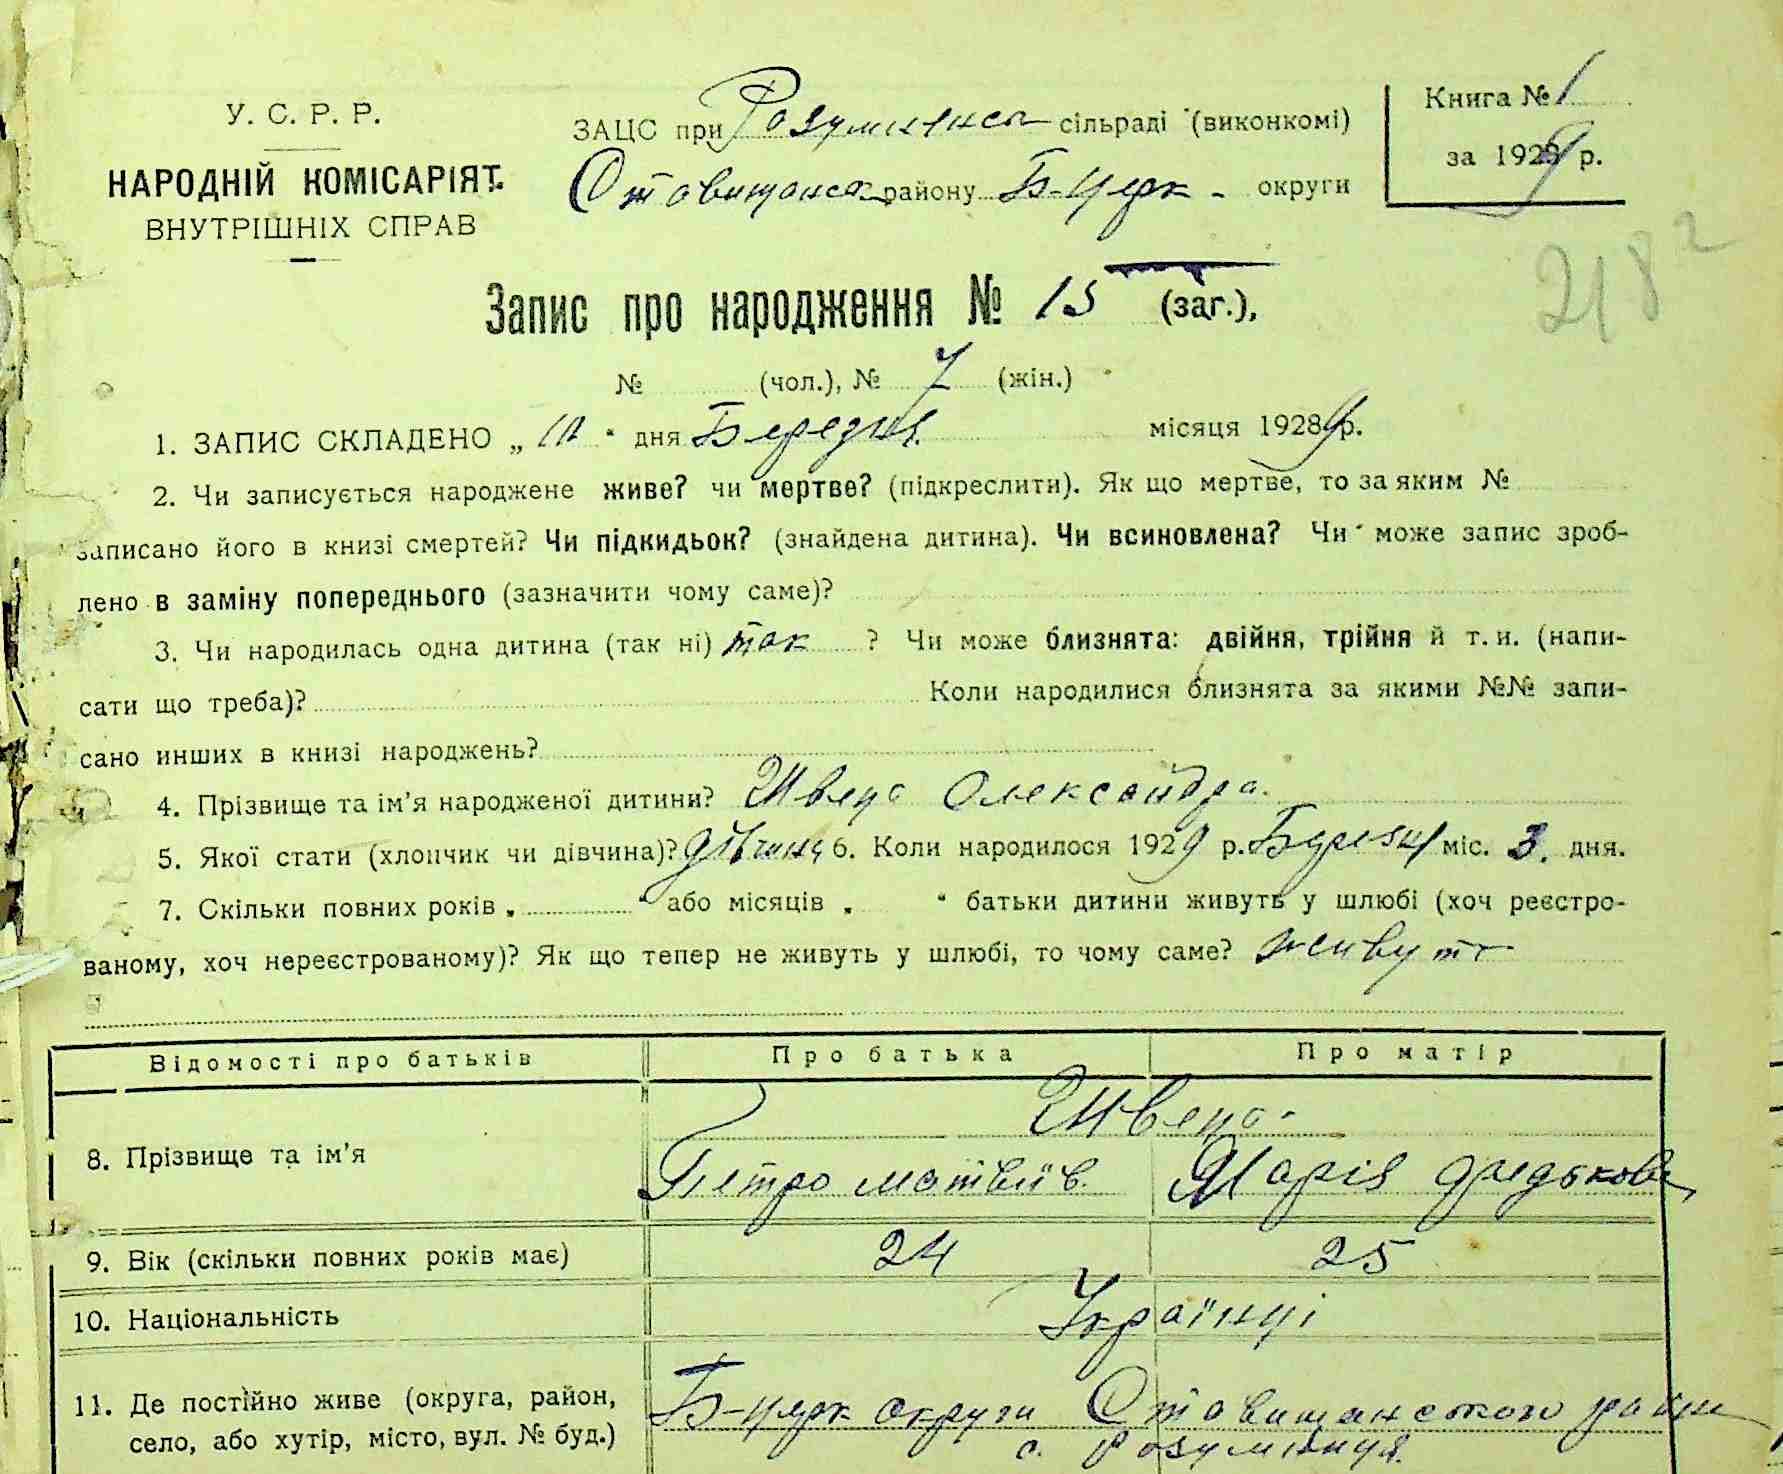 У. С. Р. Р.
НАРОДНІЙ КОМІСАРІЯТ.
ВНУТРІШНІХ СПРАВ
ЗАЦС при Розуминсь сільраді (виконкомі)
Ставищанск району Б-Церк - округи
Книга № 1
за 1929 р.
218 2
Запис про народження № 15 (заг.),
№ (чол.), № 7 (жін.)
1. ЗАПИС СКЛАДЕНО „ “ дня Березня місяця 1929 р.
2. Чи записується народжене живе? чи мертве? (підкреслити). Як що мертве, то за яким №
записано його в книзі смертей? Чи підкидьок? (знайдена дитина). Чи всиновлена? Чи може запис зроб-
лено в заміну попереднього (зазначити чому саме)?
3. Чи народилась одна дитина (так ні) так ? Чи може близнята: двійня, трійня й т. и. (напи-
сати що треба)? Коли народилися близнята за якими №№ запи-
сано инших в книзі народжень?
4. Прізвище та ім'я народженої дитини? Швець Олександра.
5. Якої стати (хлопчик чи дівчина)? дівчина 6. Коли народилось 1929 р. Березня міс. 3. дня.
7. Скільки повних років „ “ або місяців „ “ батьки дитини живуть у шлюбі (хоч реєстро-
ваному, хоч нереєстрованому)? Як що тепер не живуть у шлюбі, то чому саме? живуть
Відомості про батьків Про батька Про матір
8. Прізвище та ім'я Швець
Петро Матвіїв. Марія Федькова
9. Вік (скільки повних років має) 24 25
10. Національність Українці
11. Де постійно живе (округа, район, Б-Церк округи Ставищанського район
село, або хутір, місто, вул. № буд.) с. Розумниця.